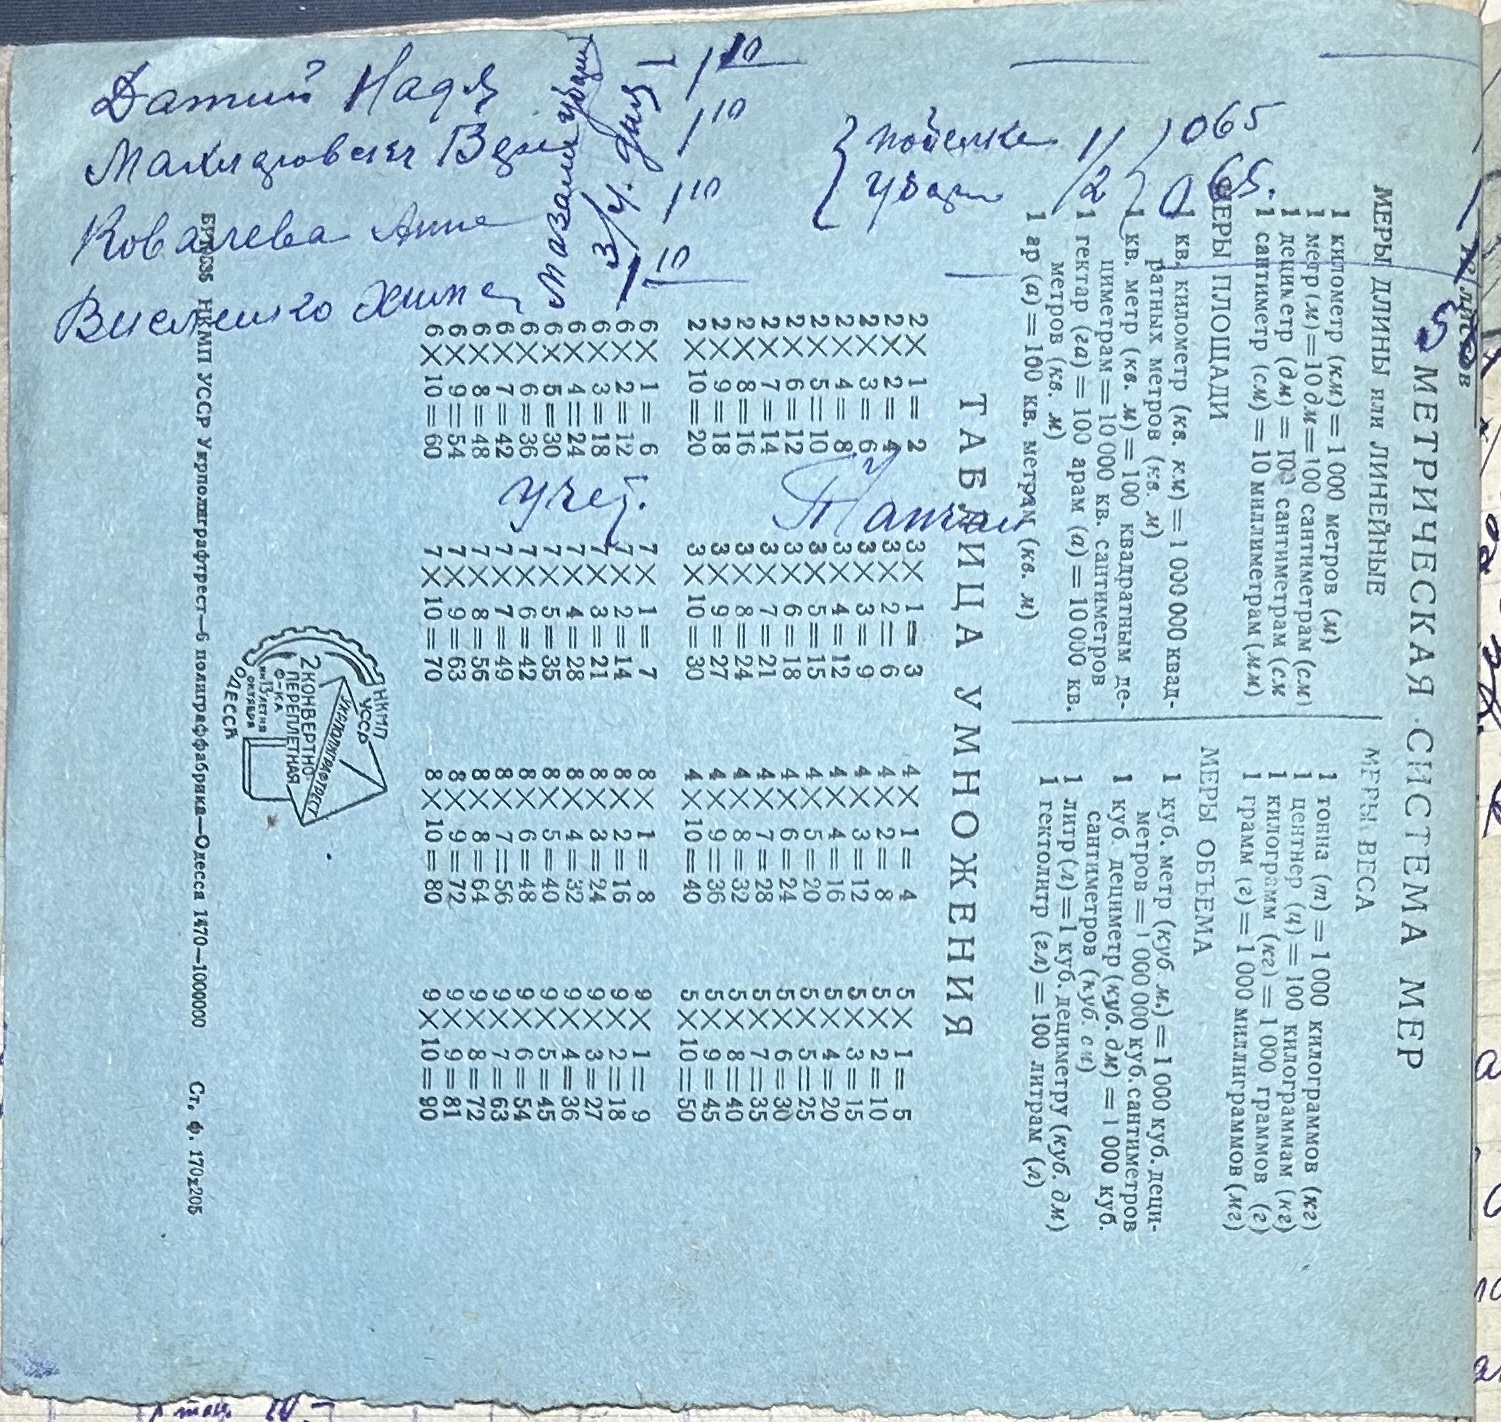 Датий Надя
Ковалева Анна
1 10
1 10
1 10
1 10
3/4. дня
11
065
12
065.
Учет.
МЕТРИЧЕСКАЯ СИСТЕМА МЕР
МЕРЫ ДЛИНЫ или ЛИНЕЙНЫЕ
1 километр (км) = 1 000 метров (м)
1 метр (м) = 10 дм = 100 сантиметрам (см)
1 дециметр (дм) = 10 сантиметрам (см
1 сантиметр (см) = 10 миллиметрам (мм)
МЕРЫ ПЛОЩАДИ
1 кв. километр (кв. км) = 1 000 000 квад-
ратных метров (кв. м)
1 кв. метр (кв. м) = 100 квадратным де-
циметрам = 10 000 кв. сантиметров
1 гектар (га) = 100 арам (а) = 10 000 кв.
метров (кв. м)
1 ар (а) = 100 кв. метрам (кв. м)
МЕРЫ ВЕСА
1 тонна (т) = 1 000 килограммов (кг)
1 центнер (ц) = 100 килограммам (кг)
1 килограмм (кг) = 1 000 граммов (г)
1 грамм (г) = 1 000 миллиграммов (мг)
МЕРЫ ОБЪЕМА
1 куб. метр (куб. м.) = 1 000 куб. деци-
метров = 1 000 000 куб. сантиметров
1 куб. дециметр (куб. дм) = 1 000 куб.
сантиметров (куб. см)
1 литр (л) = 1 куб. дециметру (куб. дм)
1 гектолитр (гл) = 100 литрам (л)
ТАБЛИЦА УМНОЖЕНИЯ
2 × 1 = 2 3 × 1 = 3 4 × 1 = 4 5 × 1 = 5
2 × 2 = 4 3 × 2 = 6 4 × 2 = 8 5 × 2 = 10
2 × 3 = 6 3 × 3 = 9 4 × 3 = 12 5 × 3 = 15
2 × 4 = 8 3 × 4 = 12 4 × 4 = 16 5 × 4 = 20
2 × 5 = 10 3 × 5 = 15 4 × 5 = 20 5 × 5 = 25
2 × 6 = 12 3 × 6 = 18 4 × 6 = 24 5 × 6 = 30
2 × 7 = 14 3 × 7 = 21 4 × 7 = 28 5 × 7 = 35
2 × 8 = 16 3 × 8 = 24 4 × 8 = 32 5 × 8 = 40
2 × 9 = 18 3 × 9 = 27 4 × 9 = 36 5 × 9 = 45
2 × 10 = 20 3 × 10 = 30 4 × 10 = 40 5 × 10 = 50
6 × 1 = 6 7 × 1 = 7 8 × 1 = 8 9 × 1 = 9
6 × 2 = 12 7 × 2 = 14 8 × 2 = 16 9 × 2 = 18
6 × 3 = 18 7 × 3 = 21 8 × 3 = 24 9 × 3 = 27
6 × 4 = 24 7 × 4 = 28 8 × 4 = 32 9 × 4 = 36
6 × 5 = 30 7 × 5 = 35 8 × 5 = 40 9 × 5 = 45
6 × 6 = 36 7 × 6 = 42 8 × 6 = 48 9 × 6 = 54
6 × 7 = 42 7 × 7 = 49 8 × 7 = 56 9 × 7 = 63
6 × 8 = 48 7 × 8 = 56 8 × 8 = 64 9 × 8 = 72
6 × 9 = 54 7 × 9 = 63 8 × 9 = 72 9 × 9 = 81
6 × 10 = 60 7 × 10 = 70 8 × 10 = 80 9 × 10 = 90
НКМП
УССР
УКРПОЛИГРАФТРЕСТ
2 КОНВЕРТНО-
ПЕРЕПЛЕТНАЯ
Ф-КА
им 13 ЛЕТИЯ
ОКТЯБРЯ
ОДЕССА
НКМП УССР Укрполиграфтрест—6 полиграффабрика—Одесса 1470—1000000 Ст. ф. 170х205